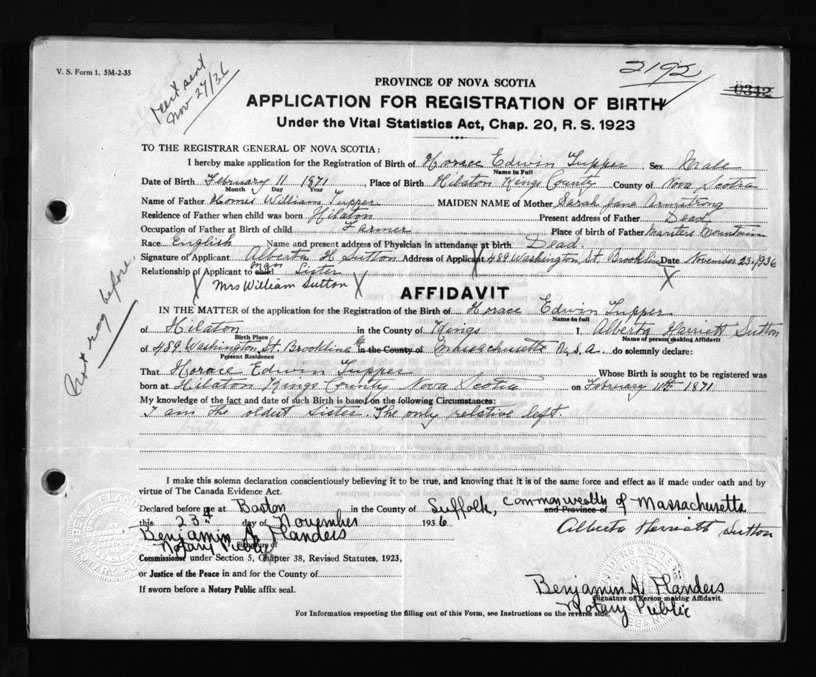 V. S. Form 1. 5M-2-35
Nov 27/36
2192
0342
PROVINCE OF NOVA SCOTIA
APPLICATION FOR REGISTRATION OF BIRTH
Under the Vital Statistics Act, Chap. 20, R. S. 1923
TO THE REGISTRAR GENERAL OF NOVA SCOTIA:
I hereby make application for the Registration of Birth of Horace Edwin Tupper Sex Male
Name in Full
Date of Birth February 11 1871, Place of Birth Hilaton Kings County County of Nova Scotia
Month Day Year
Name of Father William Tupper MAIDEN NAME of Mother Sarah Jane Armstrong
Residence of Father when child was born Hilaton Present address of Father Dead
Occupation of Father at Birth of child Farmer Place of birth of Father Marsters Mountain
Race English Name and present address of Physician in attendance at birth Dead.
Signature of Applicant Alberta H Sutton Address of Applicant 489 Washington St. Brookline Date November 23, 1936
Relationship of Applicant to child man Sister
Mrs William Sutton
AFFIDAVIT
Not reg before.
IN THE MATTER of the application for the Registration of the Birth of Horace Edwin Tupper
Name in full
of Hilaton in the County of Kings I, Alberta Harriett Sutton
Birth Place Name of person making Affidavit
of 489 Washington St. Brookline in the County of Massachusetts U.S.A. do solemnly declare:
Present Residence
That Horace Edwin Tupper Whose Birth is sought to be registered was
born at Hilaton Kings County Nova Scotia on February 11th 1871.
My knowledge of the fact and date of such Birth is based on the following Circumstances:
I am the oldest sister. The only relative left.
I make this solemn declaration conscientiously believing it to be true, and knowing that it is of the same force and effect as if made under oath and by
virtue of The Canada Evidence Act.
Declared before me at Boston in the County of Suffolk, Commonwealth of Massachusetts
and Province of
this 23rd day of November 1936
Alberta Harriett Sutton
Benjamin A. Flanders
Notary Public
Commissioned under Section 5, Chapter 38, Revised Statutes, 1923,
or Justice of the Peace in and for the County of
If sworn before a Notary Public affix seal.
Benjamin A. Flanders
Signature of Person making Affidavit.
Notary Public
For Information respecting the filling out of this Form, see Instructions on the reverse side.